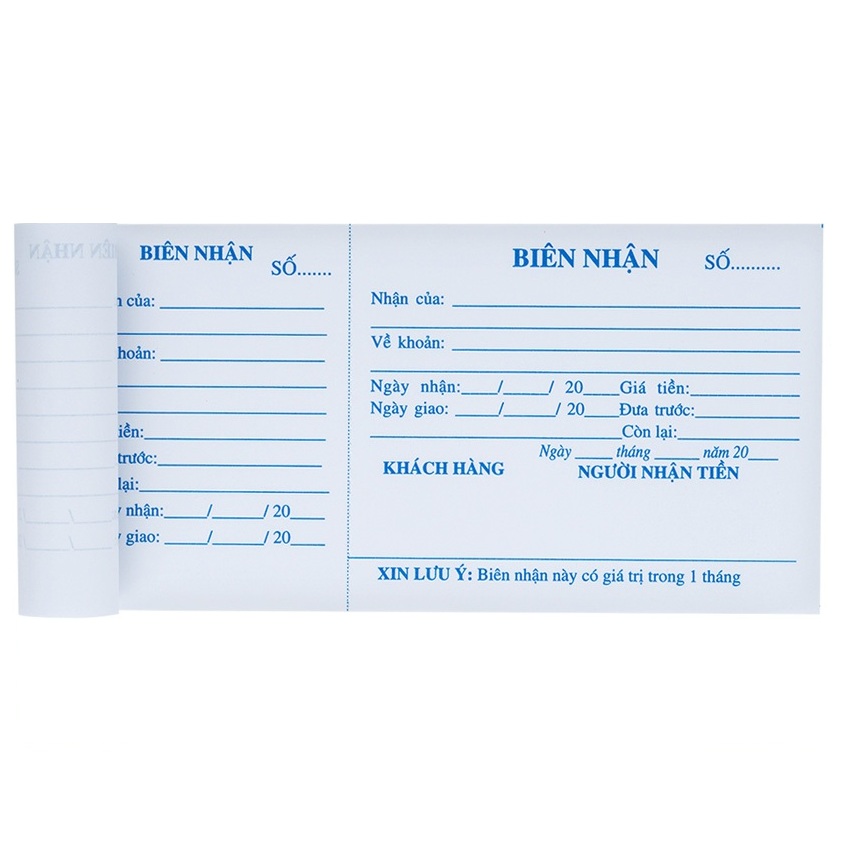 BIÊN NHẬN SỐ.......
của: ____________
khoản: ____________
tiền: ____________
trước: ____________
lại: ____________
nhận: _____/_____/ 20____
giao: _____/_____/ 20____
BIÊN NHẬN SỐ..........
Nhận của: ____________
Về khoản: ____________
Ngày nhận:____/_____/ 20____ Giá tiền:____________
Ngày giao: _____/______/ 20____ Đưa trước:____________
____________Còn lại:____________
Ngày _____ tháng ______ năm 20____
KHÁCH HÀNG NGƯỜI NHẬN TIỀN
XIN LƯU Ý: Biên nhận này có giá trị trong 1 tháng